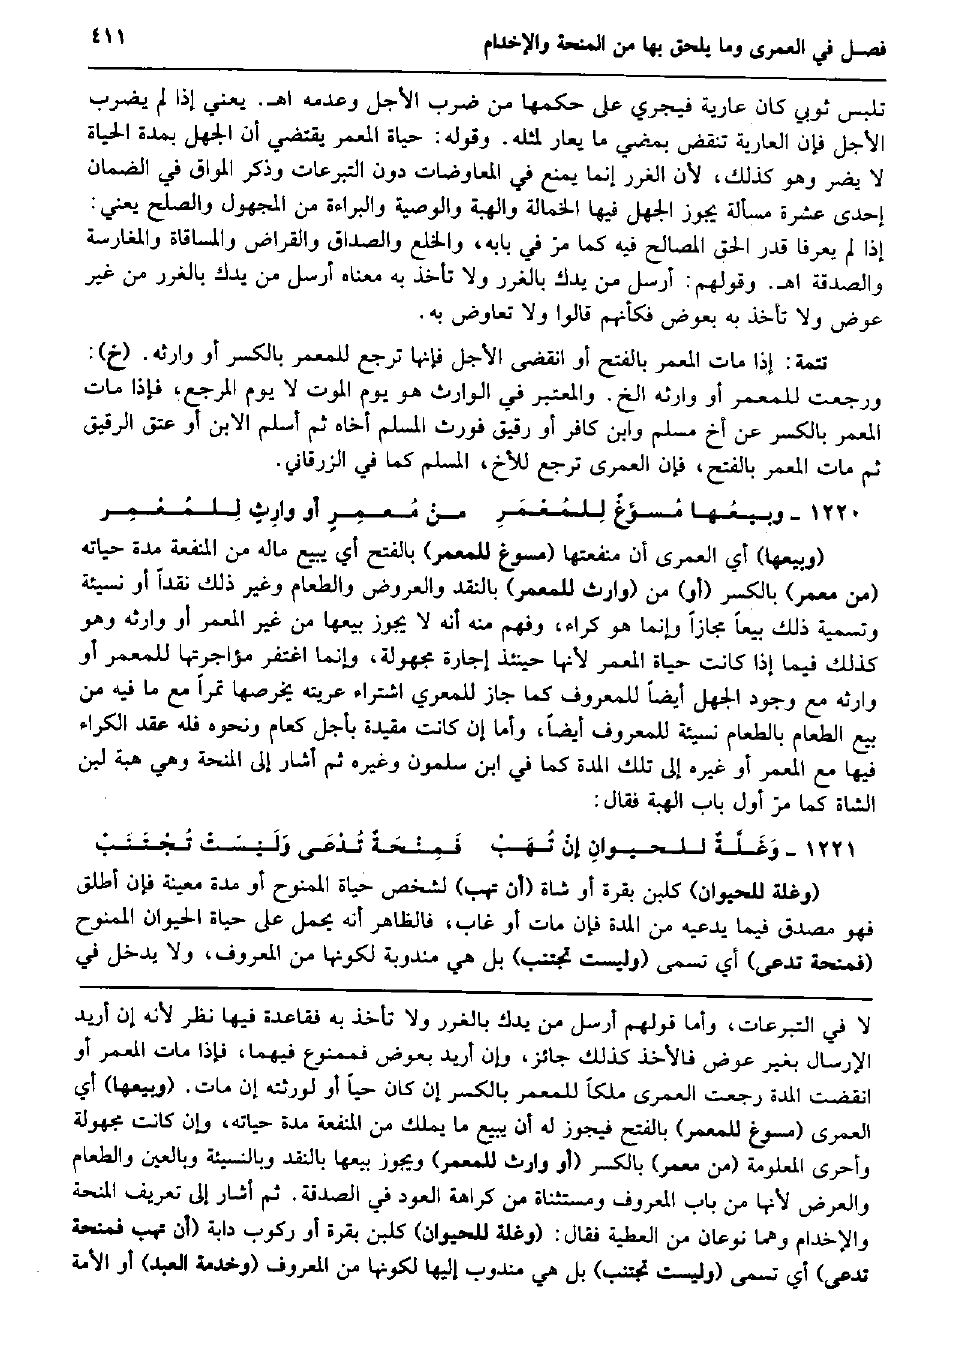 فصل في العمرى وما يلحق بها من المنحة والإخدام
٤١١
تلبس ثوبي كان عارية فيجري على حكمها من ضرب الأجل وعدمه اهـ. يعني إذا لم يضرب
الأجل فإن العارية تنقض بمضي ما يعار لمثله. وقوله: حياة المعمر يقتضي أن الجهل بمدة الحياة
لا يضر وهو كذلك، لأن الغرر إنما يمنع في المعاوضات دون التبرعات وذكر المواق في الضمان
إحدى عشرة مسألة يجوز الجهل فيها الخمالة والهبة والوصية والبراءة من المجهول والصلح يعني:
إذا لم يعرفا قدر الحق المصالح فيه كما مرّ في بابه، والخلع والصداق والقراض والمساقاة والمغارسة
والصدقة اهـ. وقولهم: أرسل من يدك بالغرر ولا تأخذ به معناه أرسل من يدك بالغرر من غير
عوض ولا تأخذ به بعوض فكأنهم قالوا ولا تعاوض به.
تتمة: إذا مات المعمر بالفتح أو انقضى الأجل فإنها ترجع للمعمر بالكسر أو وارثه. (خ):
ورجعت للمعمر أو وارثه الخ. والمعتبر في الوارث هو يوم الموت لا يوم المرجع، فإذا مات
المعمر بالكسر عن أخ مسلم وابن كافر أو رقيق فورث المسلم أخاه ثم أسلم الابن أو عتق الرقيق
ثم مات المعمر بالفتح، فإن العمرى ترجع للأخ، المسلم كما في الزرقاني.
١٢٢٠ ـ وبيعُها مُسوّغٌ لِلمُعْمَرِ من مُعمِرٍ أو وارِثٍ لِلمُعْمِرِ
(وبيعها) أي العمرى أن منفعتها (مسوغ للمعمر) بالفتح أي يبيع ماله من المنفعة مدة حياته
(من معمر) بالكسر (أو) من (وارث للمعمر) بالنقد والعروض والطعام وغير ذلك نقداً أو نسيئة
وتسمية ذلك بيعاً مجازاً وإنما هو كراء، وفهم منه أنه لا يجوز بيعها من غير المعمر أو وارثه وهو
كذلك فيما إذا كانت حياة المعمر لأنها حينئذ إجارة مجهولة، وإنما اغتفر مؤاجرتها للمعمر أو
وارثه مع وجود الجهل أيضاً للمعروف كما جاز للمعري اشتراء عريته يخرصها تمراً مع ما فيه من
بيع الطعام بالطعام نسيئة للمعروف أيضاً، وأما إن كانت مقيدة بأجل كعام ونحوه فله عقد الكراء
فيها مع المعمر أو غيره إلى تلك المدة كما في ابن سلمون وغيره ثم أشار إلى المنحة وهي هبة لبن
الشاة كما مرّ أول باب الهبة فقال:
١٢٢١ ـ وَغَلَّةٌ للحيوانِ إنْ تُهَبْ فَمِنْحَةٌ تُدْعَى وَلَيسَتْ تُجْتَنَبْ
(وغلة للحيوان) كلبن بقرة أو شاة (أن تهب) لشخص حياة الممنوح أو مدة معينة فإن أطلق
فهو مصدق فيما يدعيه من المدة فإن مات أو غاب، فالظاهر أنه يحمل على حياة الحيوان الممنوح
(فمنحة تدعى) أي تسمى (وليست تجتنب) بل هي مندوبة لكونها من المعروف، ولا يدخل في
لا في التبرعات، وأما قولهم أرسل من يدك بالغرر ولا تأخذ به فقاعدة فيها نظر لأنه إن أريد
الإرسال بغير عوض فالأخذ كذلك جائز، وإن أريد بعوض فممنوع فيهما، فإذا مات المعمر أو
انقضت المدة رجعت العمرى ملكاً للمعمر بالكسر إن كان حياً أو لورثته إن مات. (وبيعها) أي
العمرى (مسوغ للمعمر) بالفتح فيجوز له أن يبيع ما يملك من المنفعة مدة حياته، وإن كانت مجهولة
وأحرى المعلومة (من معمر) بالكسر (أو وارث للمعمر) ويجوز بيعها بالنقد وبالنسيئة وبالعين والطعام
والعرض لأنها من باب المعروف ومستثناة من كراهة العود في الصدقة. ثم أشار إلى تعريف المنحة
والإخدام وهما نوعان من العطية فقال: (وغلة للحيوان) كلبن بقرة أو ركوب دابة (أن تهب فمنحة
تدعى) أي تسمى (وليست تجتنب) بل هي مندوب إليها لكونها من المعروف (وخدمة العبد) أو الأمة